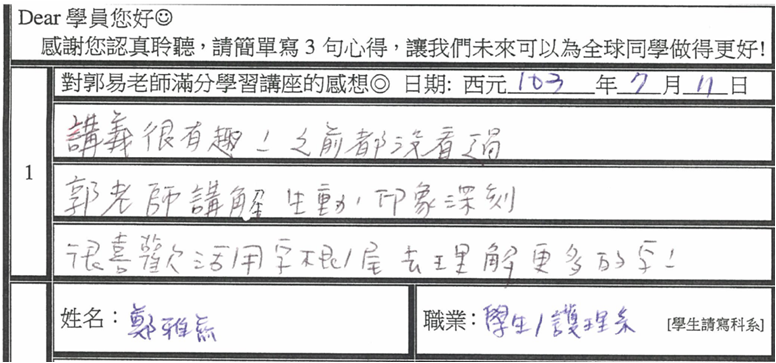 Dear 學員您好☺
感謝您認真聆聽，請簡單寫 3 句心得，讓我們未來可以為全球同學做得更好!
對郭易老師滿分學習講座的感想◎ 日期: 西元 103 年 7 月 11 日
1
講義很有趣！之前都沒看過
郭老師講解生動，印象深刻
很喜歡活用字根/尾去理解更多的字！
姓名：鄭雅
職業：學生/護理系 [學生請寫科系]